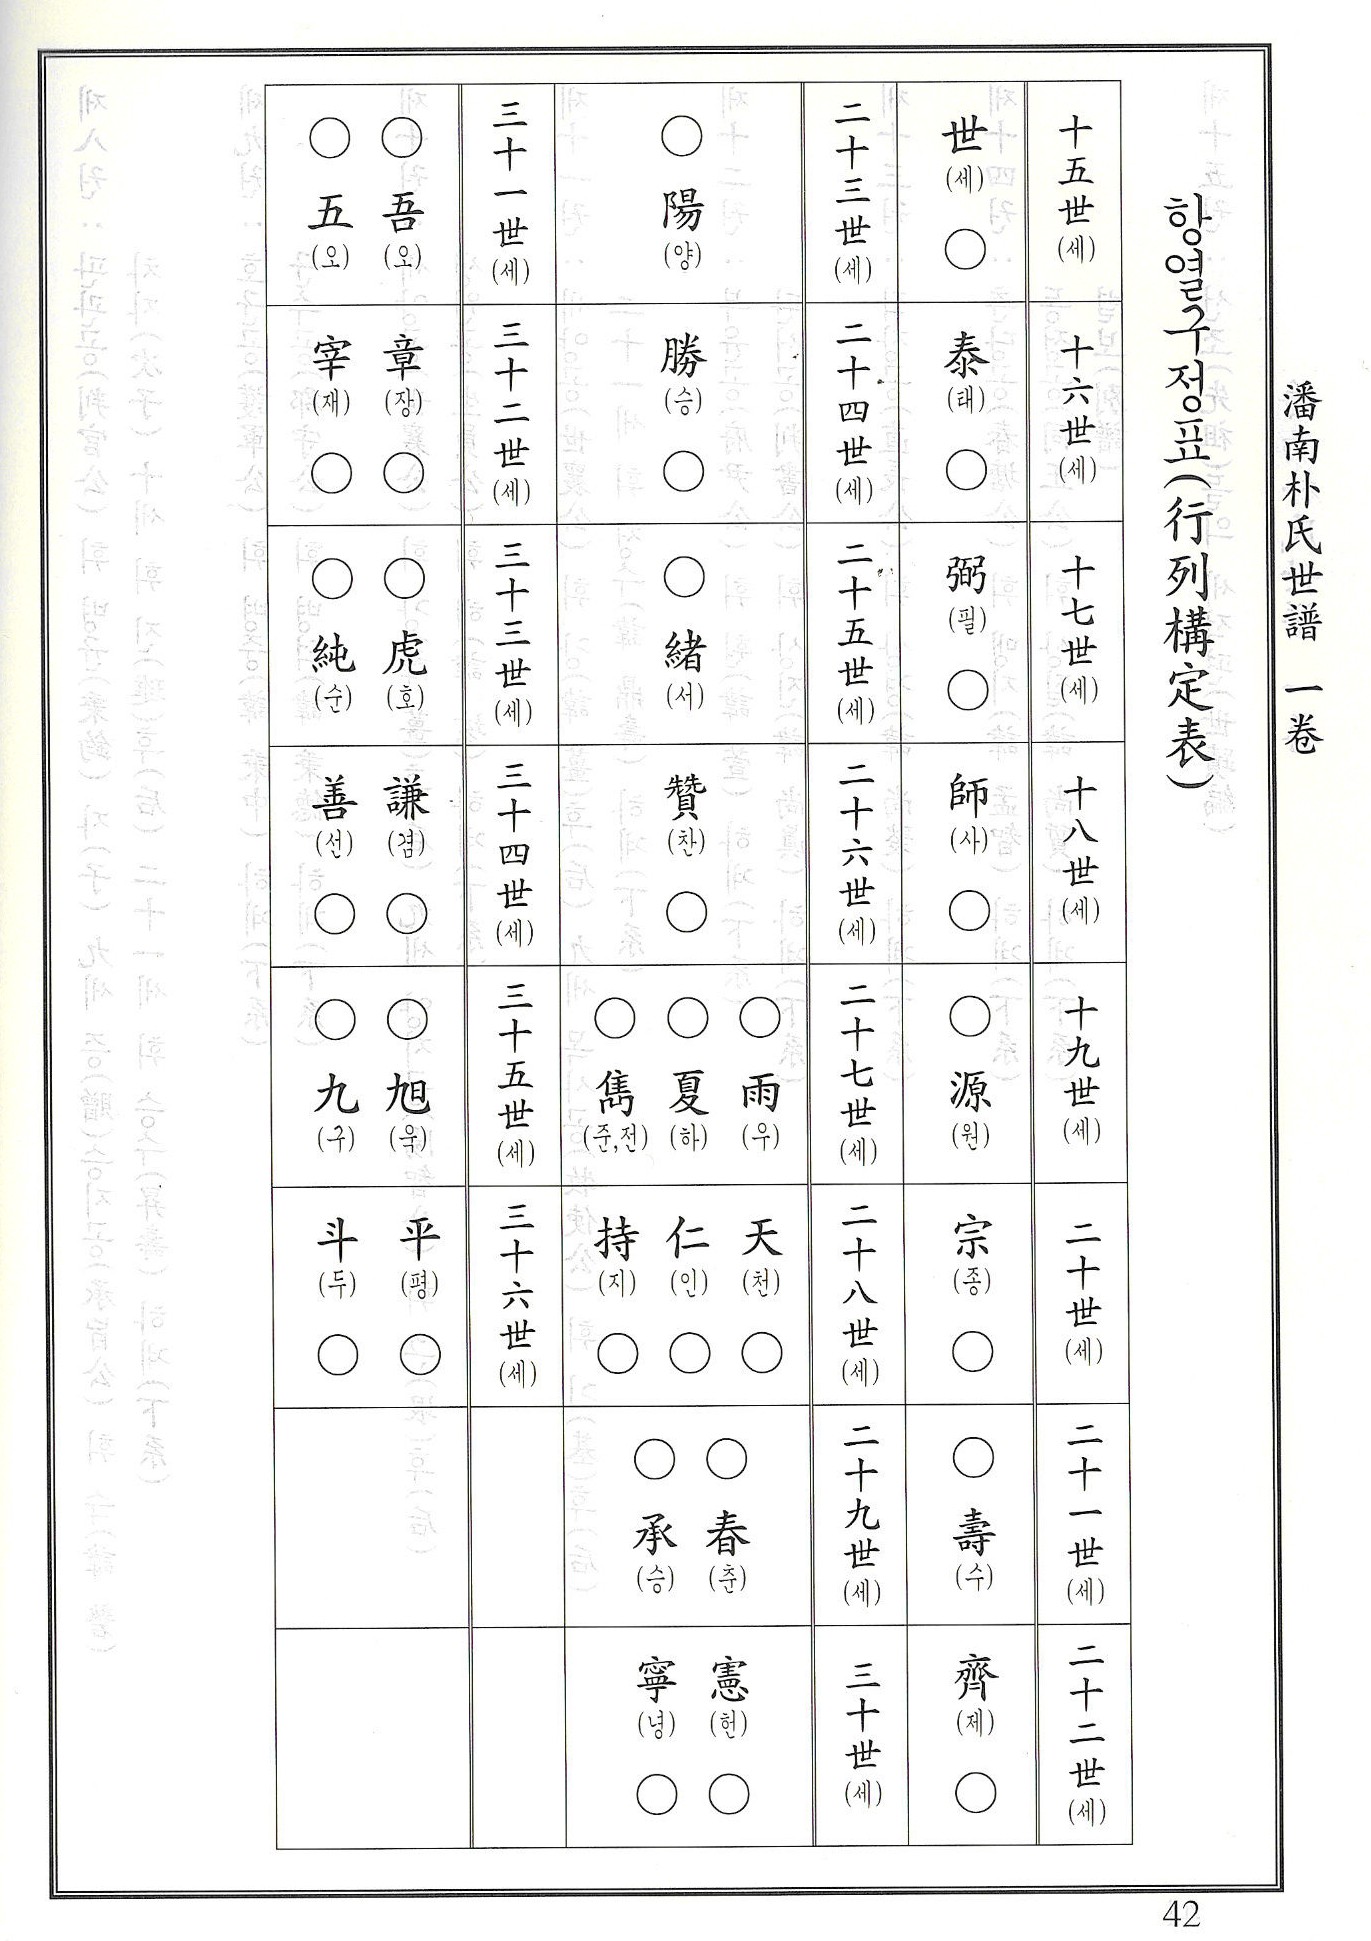 潘南朴氏世譜 一卷
항열구정표(行列構定表)
十五世(세)
世(세)○
十六世(세)
泰(태)○
十七世(세)
弼(필)○
十八世(세)
師(사)○
十九世(세)
○源(원)
二十世(세)
宗(종)○
二十一世(세)
○壽(수)
二十二世(세)
齊(제)○
二十三世(세)
○陽(양)
二十四世(세)
勝(승)○
二十五世(세)
○緖(서)
二十六世(세)
贊(찬)○
二十七世(세)
○雨(우)
○夏(하)
○雋(준,전)
二十八世(세)
天(천)○
仁(인)○
持(지)○
二十九世(세)
○春(춘)
○承(승)
三十世(세)
憲(헌)○
寧(녕)○
三十一世(세)
○吾(오)
○五(오)
三十二世(세)
章(장)○
宰(재)○
三十三世(세)
○虎(호)
○純(순)
三十四世(세)
謙(겸)○
善(선)○
三十五世(세)
○旭(욱)
○九(구)
三十六世(세)
平(평)○
斗(두)○
42